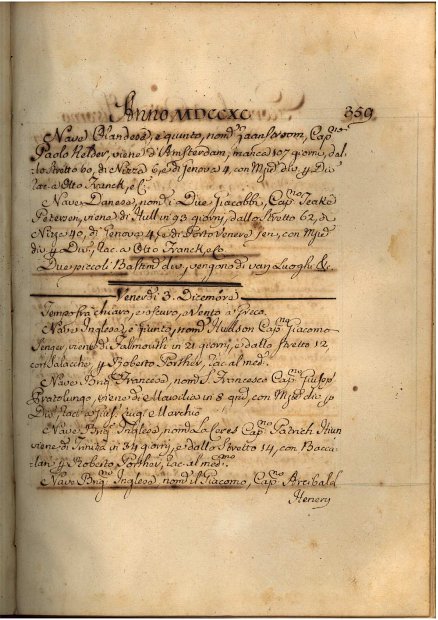 Anno MDCCXC 359
Nave Olandese, e quinto, nom.ᵗ Jaan Veroom, Cap.ⁿᵒ
Paolo Relder, viene d'Amsterdam, manca 107 giorni, dal-
lo Stretto 60, di Nizza 6, e di Jenova 4, con Mjze div, p Div
lac. a Otto Franck, e C.
Nave Danese, nom. i Due Jiacobbi, Cap.ⁿᵒ Teake
Petersen, viene di Hull in 93 giorni, dallo Stretto 62, di
Nizza 40, di Jenova 4, e di Porto Venere jeri, con Mjze
div, p Div, lac. a Otto Franck, e C.
Due piccoli Bastim. div, vengono di varj Luoghi &.
Venerdì 3. Dicembre
Tempo frà chiaro, e oscuro, e Vento a Greco.
Nave Inglese, e giunto, nom. Hudson Cap.ⁿᵒ Giacomo
viene di Falmouth in 21 giorni, e dallo Stretto 12
con Salacche, p Roberto Porther, lac. al med.
Nave Brig. Francese, nom. S. Francesco Cap.ⁿᵒ
Pratolungo, viene di in 8 con Mjze div p
Div, lac. a
Nave Brig. Inglese, nom. La Ceres Cap.ⁿᵒ Patrich
viene di Trinità in 34 giorni, e dallo Stretto 14, con Bacca-
lari p Roberto Porther, lac. al med.ᵐᵒ
Nave Brig.ⁿᵒ Inglese, nom. il Giacomo, Cap.ⁿᵒ Arcibald
Henery